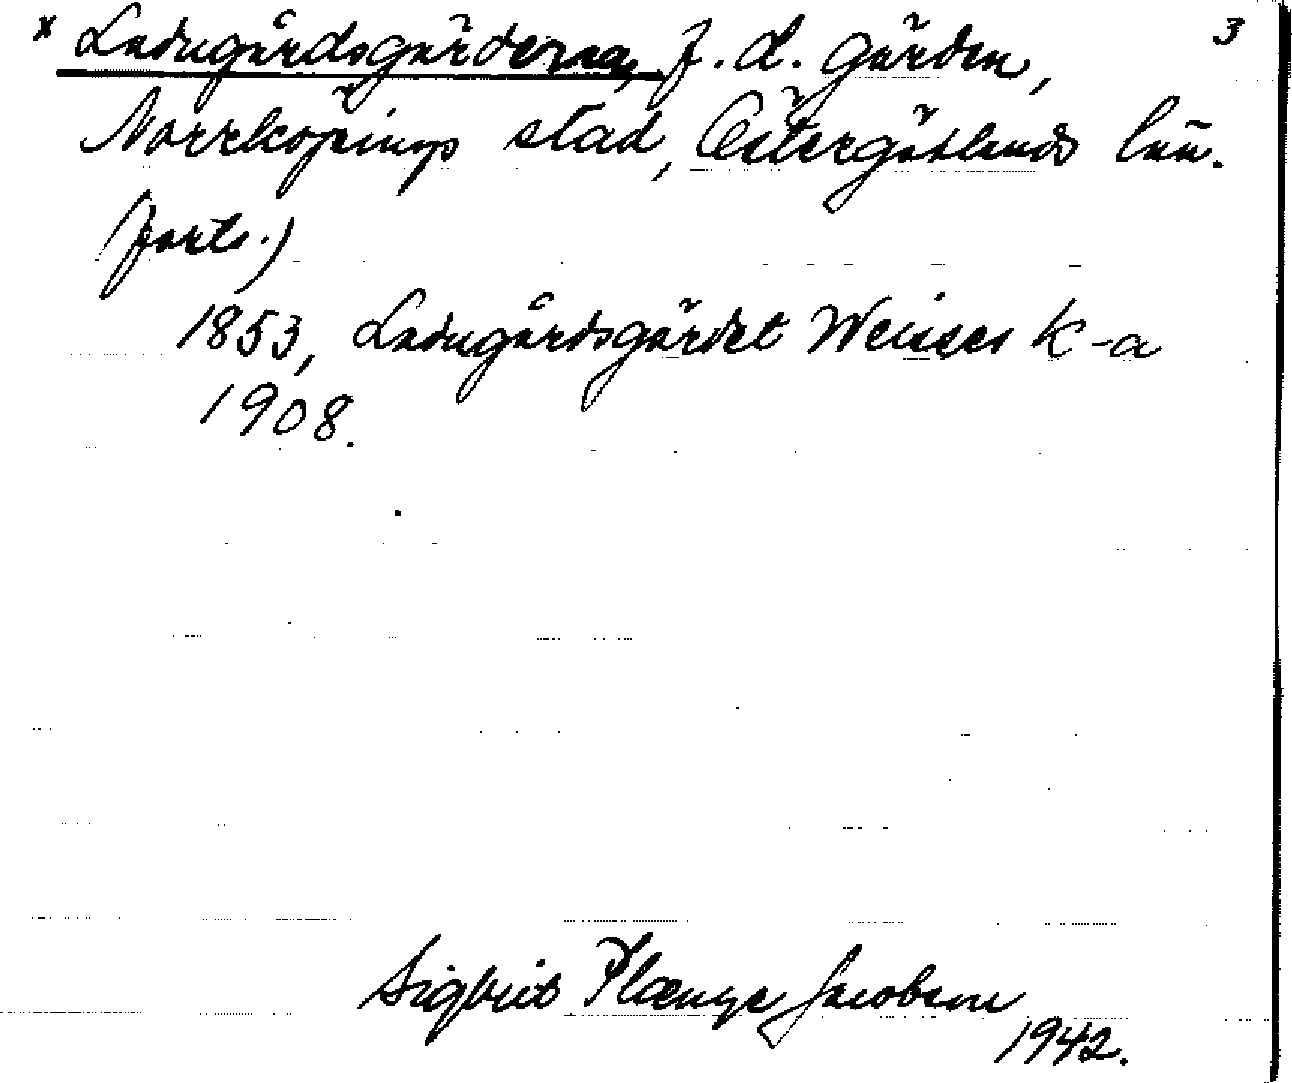 x Ladugårdsgärderna, f. d. gärden, 3
Norrköpings stad, Östergötlands län.
(forts.)
1853, Ladugårdsgärdet Weises k-a
1908.
Sigbrit Plænge Jacobson
1942.